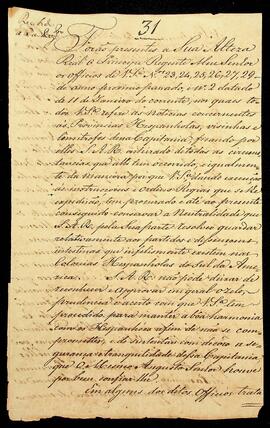 31
Forão presentes a Sua Alteza
Real o Principe Regente Meu Senhor
os officios de V. S.ª N.os 23, 24, 25, 26, 27, 29
do anno proximo passado, e N.º 2 datado
de 11 de Janeiro do corrente, nos quaes to-
da V. S.ª refere as Noticias concernentes
ás Provincias Hespanholas, visinhas e
limitrofes dessa Capitania; ficando por
elles S. A. R. inteirado de todas as circuns-
tancias que alli tem occorrido, e igualmen-
te da maneira por que V. S.ª dando execução
ás instrucções e Ordens Regias que se lhe
expedirão, tem procurado e até ao presente
conseguido conservar a Neutralidade que
S. A. R. pela Sua parte resolveo guardar
relativamente aos partidos e dissensoens
intestinas que infelizmente existem nas
Colonias Hespanholas do Sul da Ame-
rica. S. A. R. não pode deixar de
reconhecer e approvar em geral o zelo,
prudencia e acerto com que V. S.ª tem
procedido, para manter a boa harmonia
com os Hespanhoes a fim de não se com-
prometter, e de sustentar com decoro a se-
gurança e tranquilidade dessa Capitania,
que O Mesmo Augusto Senhor houve
por bem confiar-lhe.
Em alguns dos ditos Officios trata